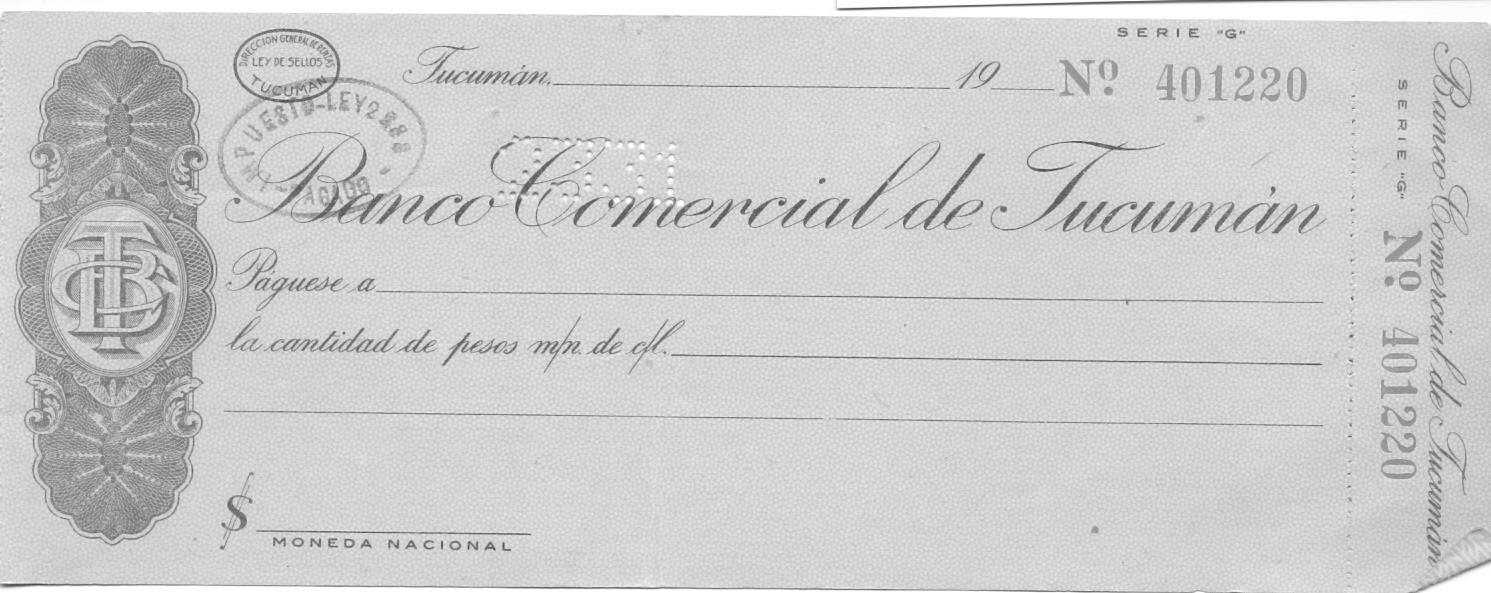 SERIE "G"
DIRECCION GENERAL DE RENTAS
LEY DE SELLOS
TUCUMÁN
Tucumán, 19 Nº 401220
IMPUESTO-LEY 2888
PAGADO
Banco Comercial de Tucumán
Páguese a
la cantidad de pesos m/n. de c/l.
$
MONEDA NACIONAL
Banco Comercial de Tucumán
SERIE "G"
Nº 401220